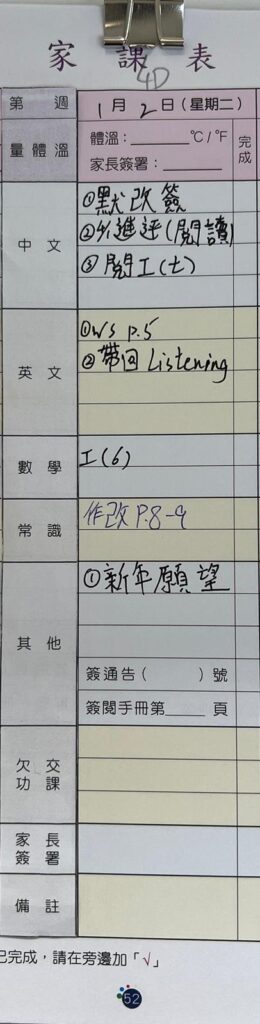 家課表
4D
第 週 1月2日(星期二)
量體溫 體溫:______°C/°F 完成
家長簽署:______
中文 ①默改簽
②進評(閱讀)
③閱工(七)
英文 ①WS P.5
②帶回 Listening
數學 工(6)
常識 作改 P.8-9
其他 ①新年願望
簽通告( )號
簽閱手冊第____頁
欠交功課
家長簽署
備註
已完成,請在旁邊加「√」
52